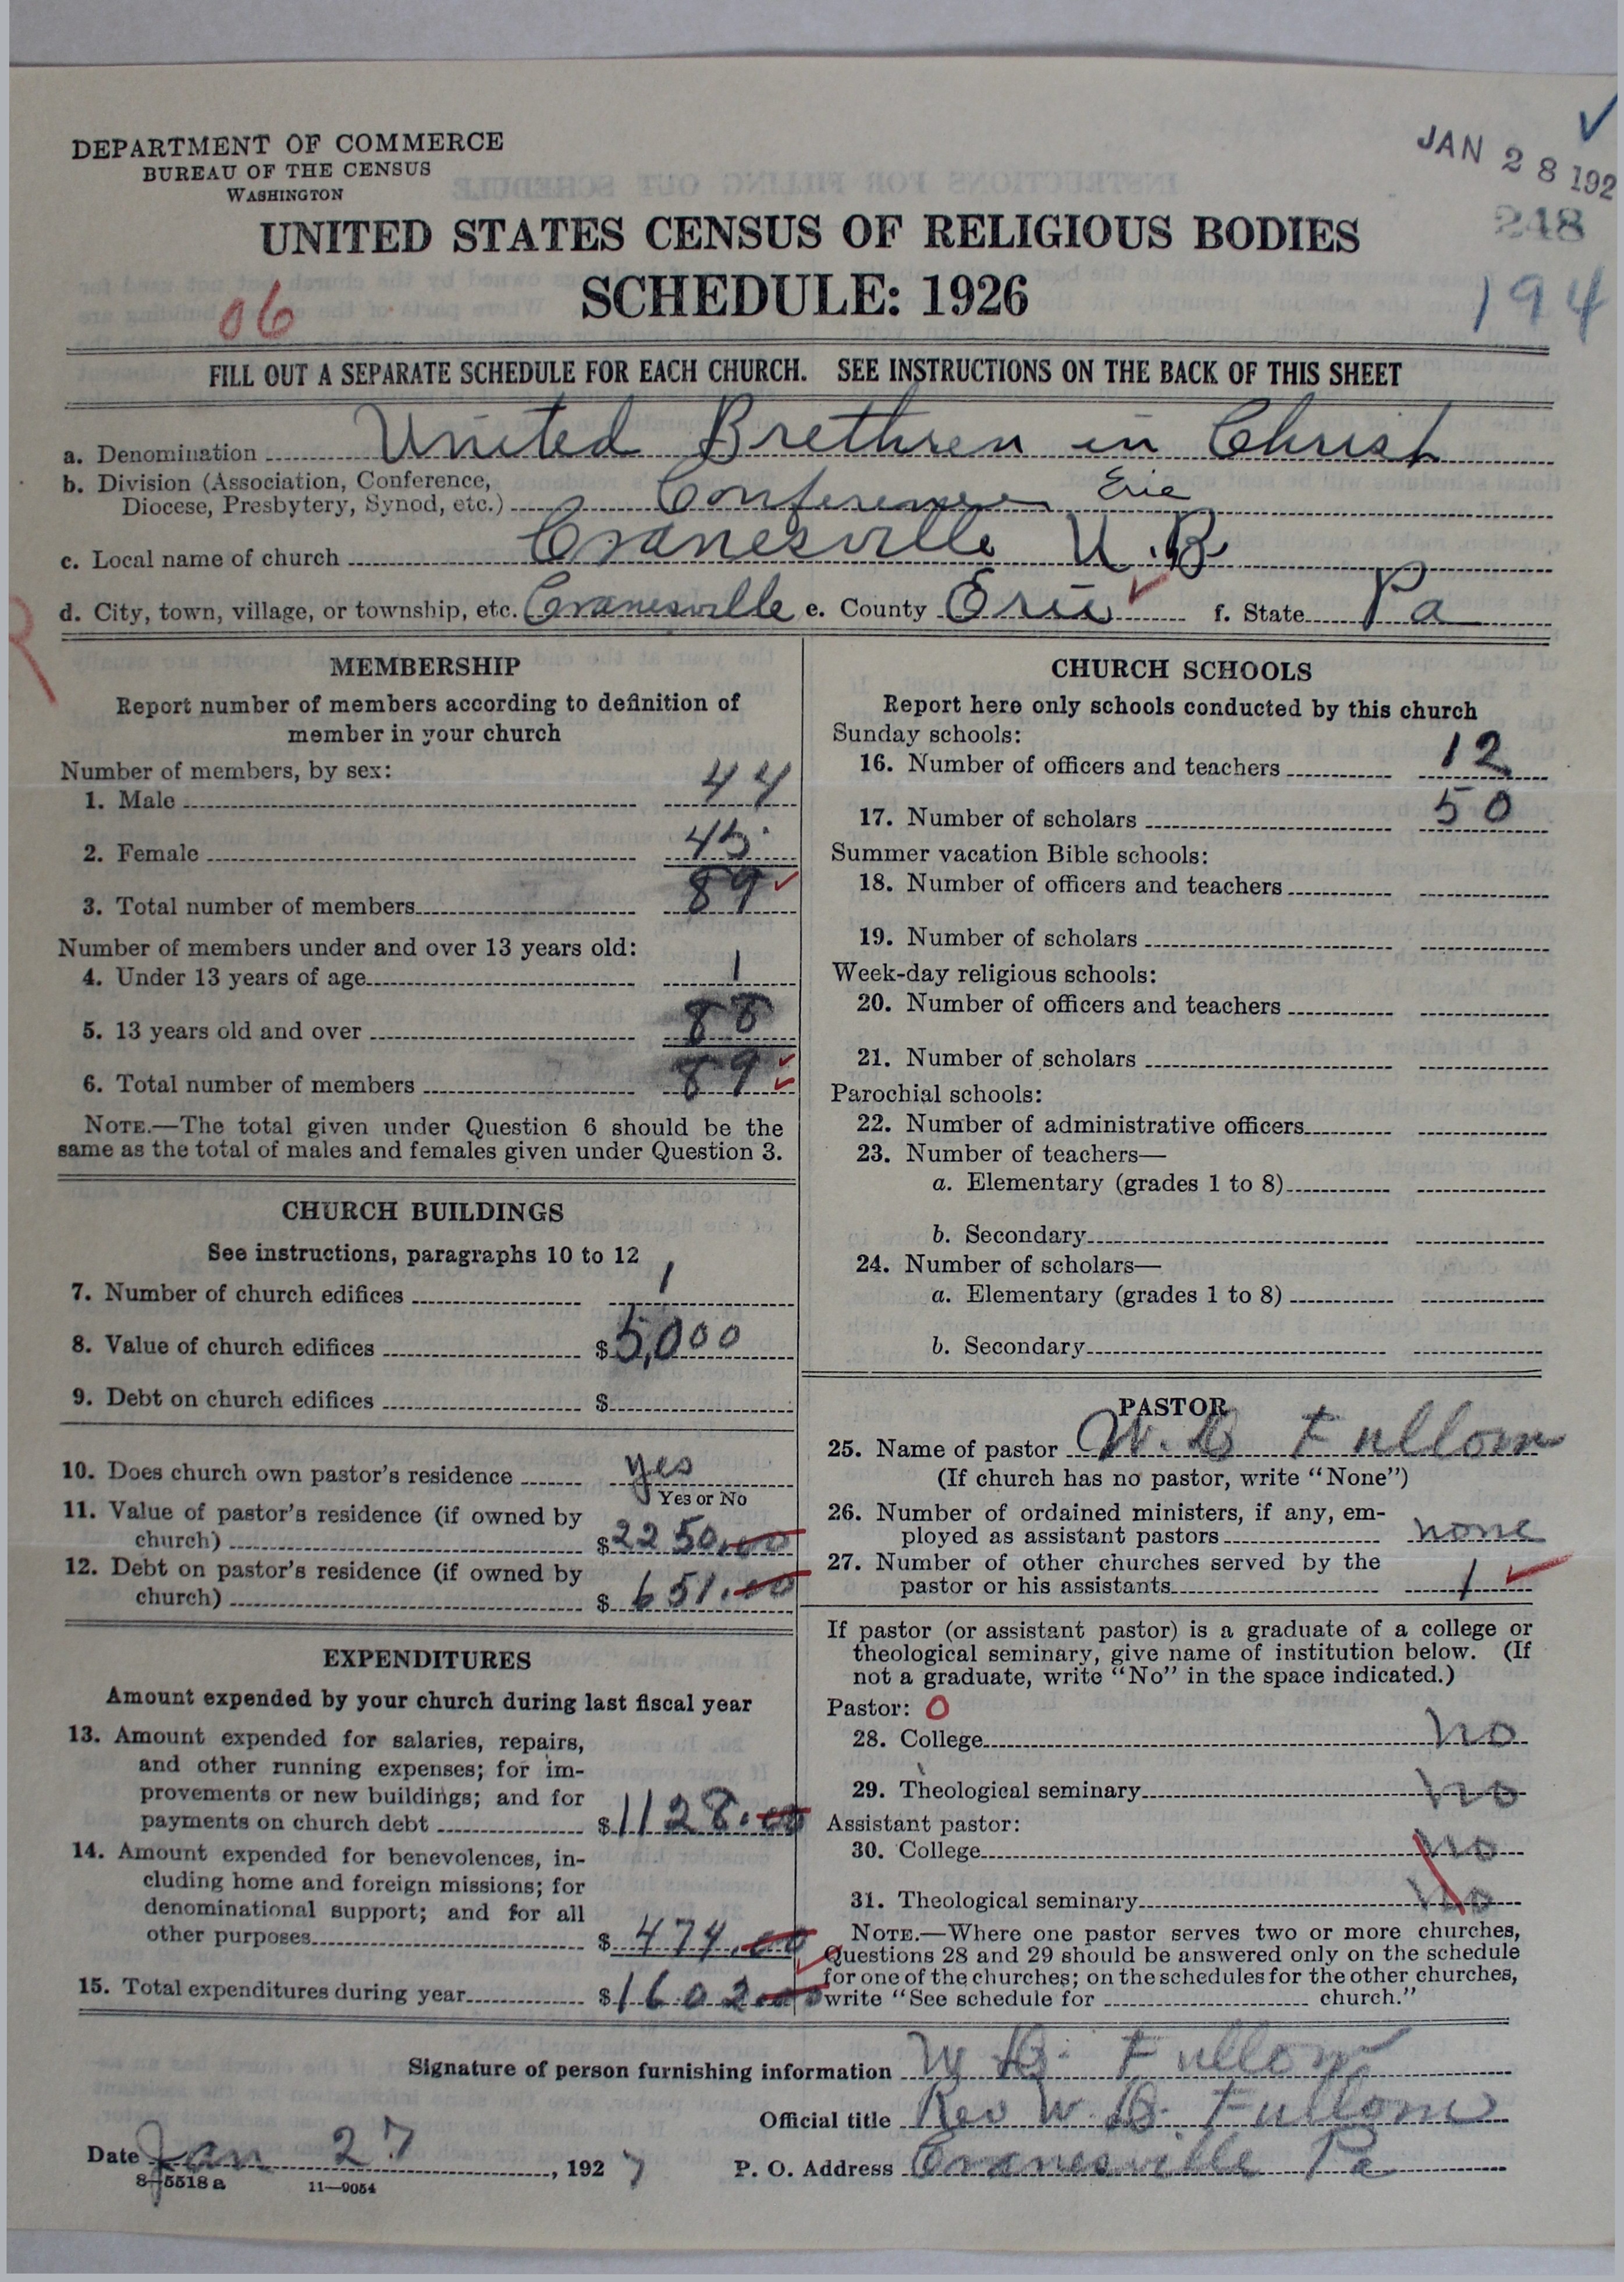 JAN 28 192
248
194
DEPARTMENT OF COMMERCE
BUREAU OF THE CENSUS
WASHINGTON
UNITED STATES CENSUS OF RELIGIOUS BODIES
SCHEDULE: 1926
06
FILL OUT A SEPARATE SCHEDULE FOR EACH CHURCH. SEE INSTRUCTIONS ON THE BACK OF THIS SHEET
a. Denomination United Brethren in Christ
b. Division (Association, Conference,
Diocese, Presbytery, Synod, etc.) Conference Erie
c. Local name of church Cranesville U.B
d. City, town, village, or township, etc. Cranesville e. County Erie f. State Pa
MEMBERSHIP
Report number of members according to definition of
member in your church
Number of members, by sex:
1. Male 44
2. Female 45
3. Total number of members 89
Number of members under and over 13 years old:
4. Under 13 years of age 1
5. 13 years old and over 88
6. Total number of members 89
NOTE.—The total given under Question 6 should be the
same as the total of males and females given under Question 3.
CHURCH BUILDINGS
See instructions, paragraphs 10 to 12
7. Number of church edifices 1
8. Value of church edifices $5,000
9. Debt on church edifices $
10. Does church own pastor's residence yes
Yes or No
11. Value of pastor's residence (if owned by
church) $2250.00
12. Debt on pastor's residence (if owned by
church) $651.00
EXPENDITURES
Amount expended by your church during last fiscal year
13. Amount expended for salaries, repairs,
and other running expenses; for im-
provements or new buildings; and for
payments on church debt $1128.00
14. Amount expended for benevolences, in-
cluding home and foreign missions; for
denominational support; and for all
other purposes $474.00
15. Total expenditures during year $1602.00
CHURCH SCHOOLS
Report here only schools conducted by this church
Sunday schools:
16. Number of officers and teachers 12
17. Number of scholars 50
Summer vacation Bible schools:
18. Number of officers and teachers
19. Number of scholars
Week-day religious schools:
20. Number of officers and teachers
21. Number of scholars
Parochial schools:
22. Number of administrative officers
23. Number of teachers—
a. Elementary (grades 1 to 8)
b. Secondary
24. Number of scholars—
a. Elementary (grades 1 to 8)
b. Secondary
PASTOR
25. Name of pastor W. D Fullom
(If church has no pastor, write "None")
26. Number of ordained ministers, if any, em-
ployed as assistant pastors none
27. Number of other churches served by the
pastor or his assistants 1
If pastor (or assistant pastor) is a graduate of a college or
theological seminary, give name of institution below. (If
not a graduate, write "No" in the space indicated.)
Pastor: 0
28. College no
29. Theological seminary no
Assistant pastor:
30. College no
31. Theological seminary no
NOTE.—Where one pastor serves two or more churches,
Questions 28 and 29 should be answered only on the schedule
for one of the churches; on the schedules for the other churches,
write "See schedule for church."
Signature of person furnishing information W D. Fullom
Official title Rev W. D. Fullom
Date Jan 27, 1927 P. O. Address Cranesville Pa
8—5518 a 11—9054